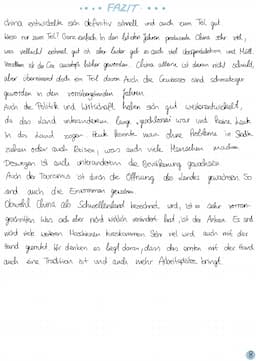 FAZIT:
China entwickelte sich definitiv schnell und auch zum Teil gut
Wieso nur zum Teil? Ganz einfach in den letzten Jahren produzierte China sehr viel,
was vielleicht schnell gut ist aber leider gab es auch viel Überproduktion und Müll.
ist der Co2 ausstoß höher geworden. China alleine ist daran nicht schuld,
aber übernimmt doch ein Teil davon. Auch die Gewässer sind schmutziger
geworden in den vorangehenden Jahren
Auch die Politik und Wirtschaft haben sich gut weiterentwickelt,
da das Land untereinander lang war und keine Leute
in das Land zogen. Heute konnte man ohne Probleme in Städte
ziehen oder auch Reisen, was auch viele Menschen machen
Deswegen ist auch untereinander die Bevölkerung gewachsen
Auch der Tourismus ist durch die Öffnung des Landes gewachsen. So
sind auch die Einnahmen gewachsen
Obwohl China als Schwellenland bezeichnet wird, ist es sehr vorran-
geschritten. Was sich aber nicht wirklich verändert hat, ist der Anbau. Es sind
nicht viele weiteren Maschinen hinzukommen. Sehr viel wird auch mit der
Hand geerntet. Wir denken es liegt daran, dass das ernten mit der Hand
auch eine Tradition ist und auch mehr Arbeitsplätze bringt.